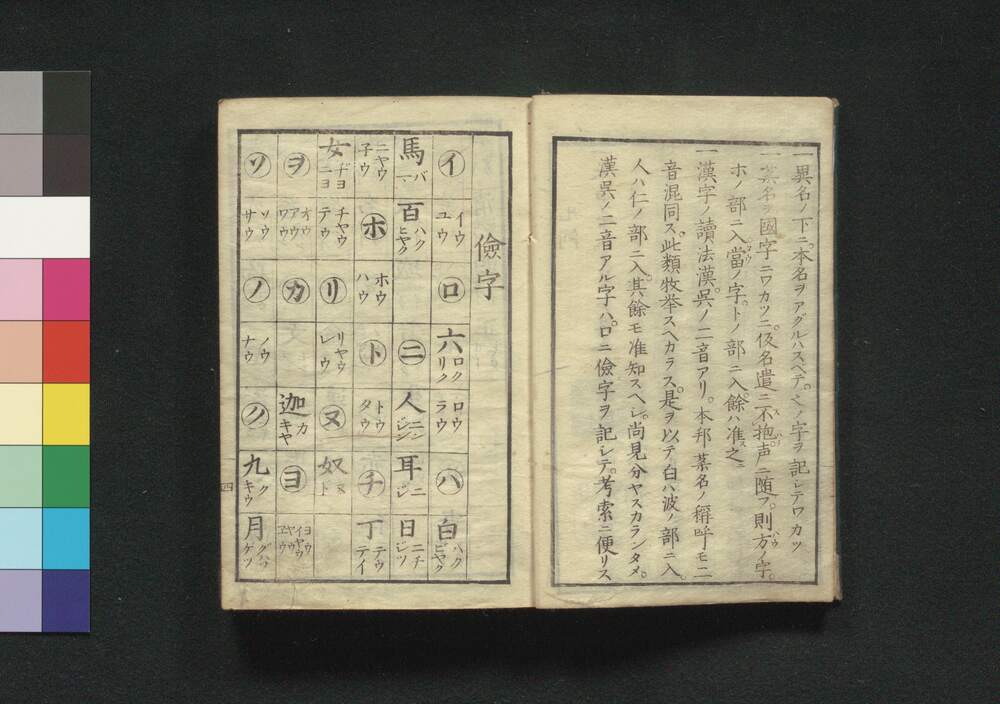 一異名ノ下ニ。本名ヲアグルハスヘテ。〱ノ字ヲ記レテワカツ
一薬名ヲ國字ニワカツニ。仮名遣ニ不抱。声ニ随フ。則方ノ字。
ホノ部ニ入當ノ字。トノ部ニ入。餘ハ准之
一漢字ノ讀法漢。呉ノ二音アリ。本邦薬名ノ稱呼モ二
音混同ス。此類牧挙スヘカラス。是ヲ以テ白ハ波ノ部ニ入。
人ハ仁ノ部ニ入。其餘モ准知スヘレ。尚見分ヤスカランタメ。
漢呉ノ二音アル字ハ。口ニ儉字ヲ記レテ。考索ニ便リス
儉字
イ イウ ユウ ロ 六 ロク リク ロウ ラウ ハ 白 ハク ビヤク
馬 バ マ 百 ハク ヒヤク ニ 人 ニン ジン 耳 ニ ジ 日 ニチ ジツ
子 ニヤウ ウ ホ ホウ ハウ ト トウ タウ チ 丁 テウ テイ
女 ヂヨ ニヨ チヤウ テウ リ リヤウ レウ ヌ 奴 ヌ ト
ヲ オウ アウ ワウ カ 迦 カ キヤ ヨ ヨウ イヤウ ヤウ ヱウ
ソ ソウ サウ ノ ノウ ナウ ク 九 ク キウ 月 グハツ ゲツ
四